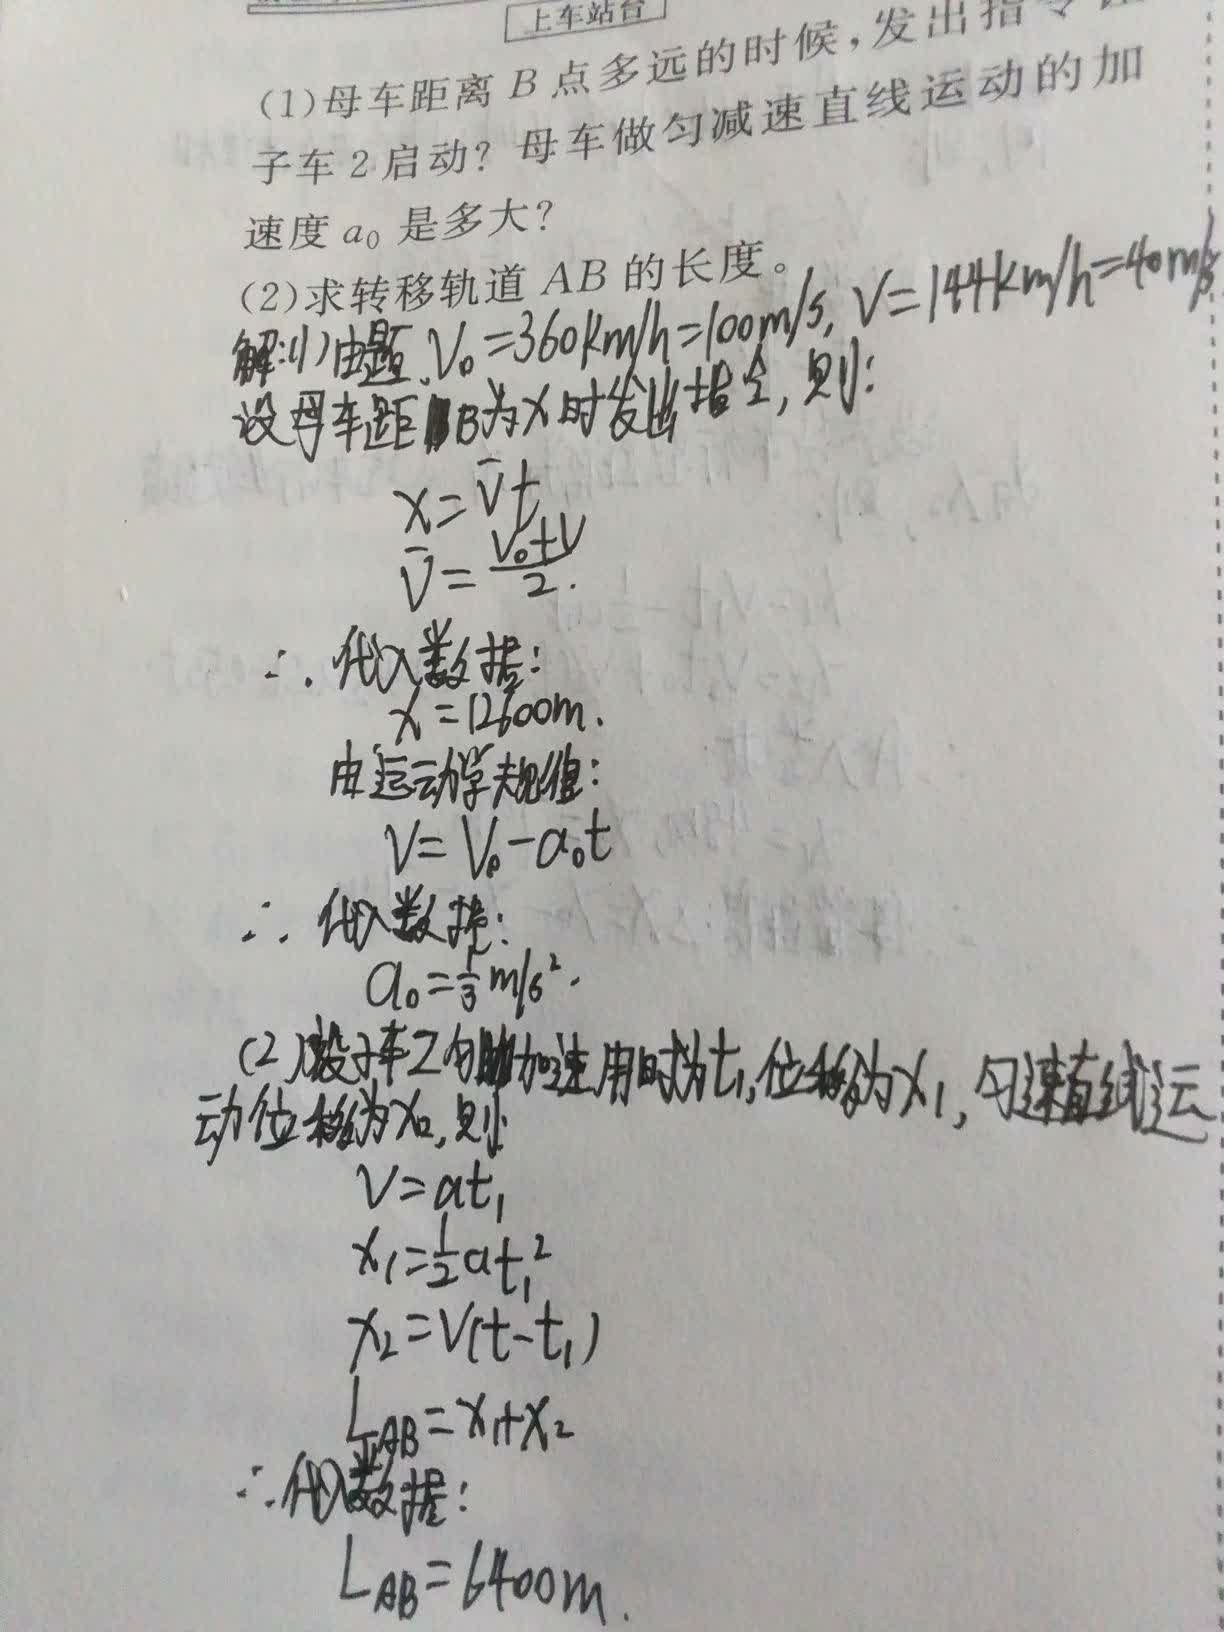 上车站台
(1)母车距离B点多远的时候,发出指令
子车2启动?母车做匀减速直线运动的加
速度a₀是多大?
(2)求转移轨道AB的长度。
解:(1)由题,V₀=360km/h=100m/s,V=144km/h=40m/s
设母车距B为x时发出指令,则:
x=v̄t
v̄=(V₀+V)/2.
∴代入数据:
x=12600m.
由运动学规律:
V=V₀-a₀t
∴代入数据:
a₀=1/3m/s².
(2)设子车2匀加速用时为t₁,位移为x₁,匀速直线运
动位移为x₂,则:
V=at₁
x₁=1/2at₁²
x₂=V(t-t₁)
L_AB=x₁+x₂
∴代入数据:
L_AB=6400m.